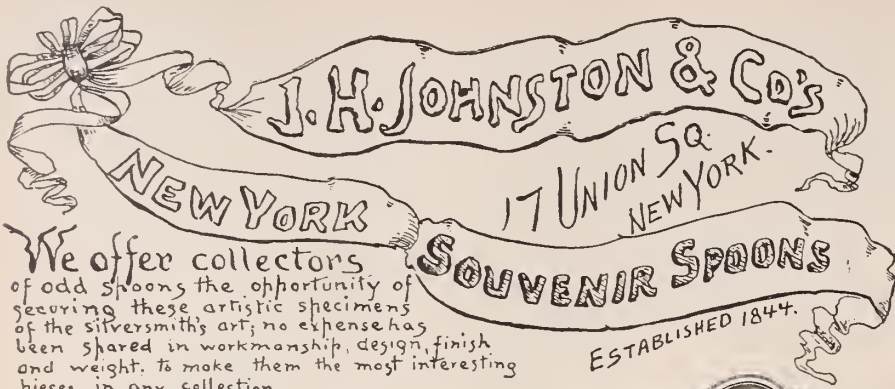 J. H. JOHNSTON & CO'S
17 UNION SQ.
NEW YORK.
NEW YORK
SOUVENIR SPOONS
ESTABLISHED 1844.
We offer collectors
of odd spoons the opportunity of
securing these artistic specimens
of the silversmith's art; no expense has
been spared in workmanship, design, finish
and weight, to make them the most interesting
pieces in any collection